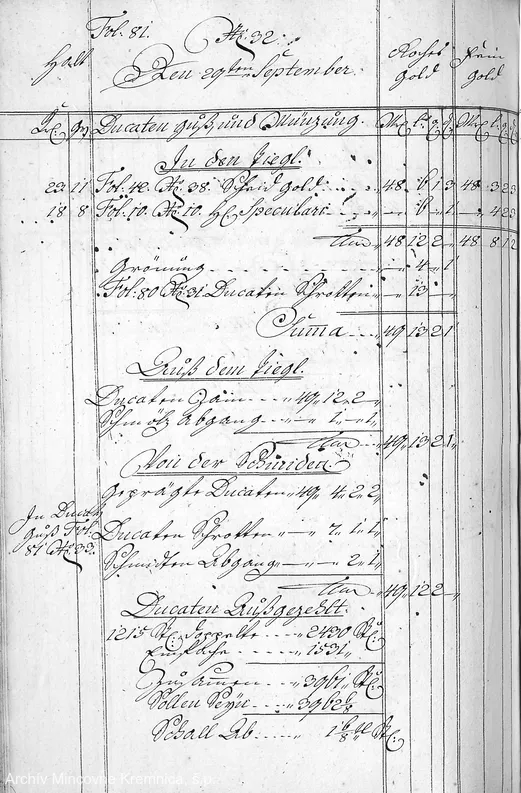 Fol: 81. No: 32.
Den 29ten September.
Halt
Roches gold
Fein gold
K: gr Ducaten guß und Münzung. M: l: q: d: M: l: q: d:
In den Tiegl.
23 11 Fol: 42. No: 38. Scheid gold 48 6 1 3 48 3 2 3
18 8 Fol: 10. No: 10. H: Speculari 6 1 4 2 3
48 12 2 48 8 1 2
Grönung 4 1
Fol: 80 No: 31. Ducaten Schrotten 13
Summa 49 13 2 1
Auß dem Tiegl.
Ducaten Zain 49 12 2
Schmölz Abgang 1 1
49 13 2 1
Von der Schneiderey
Geprägte Ducaten 49 4 2 2
In Ducaten
Guß Fol:
81 No: 33.
Ducaten Schrotten 7 1 1
Schmidten Abgang 2 1
49 12 2
Ducaten Außgezehlt.
1215 St: doppelte 2430 St:
Einfache 1531
Zusammen 3961 St:
Sollen Seyn 3962
Schall Ab St:
Archív Mincovne Kremnica, š.p.